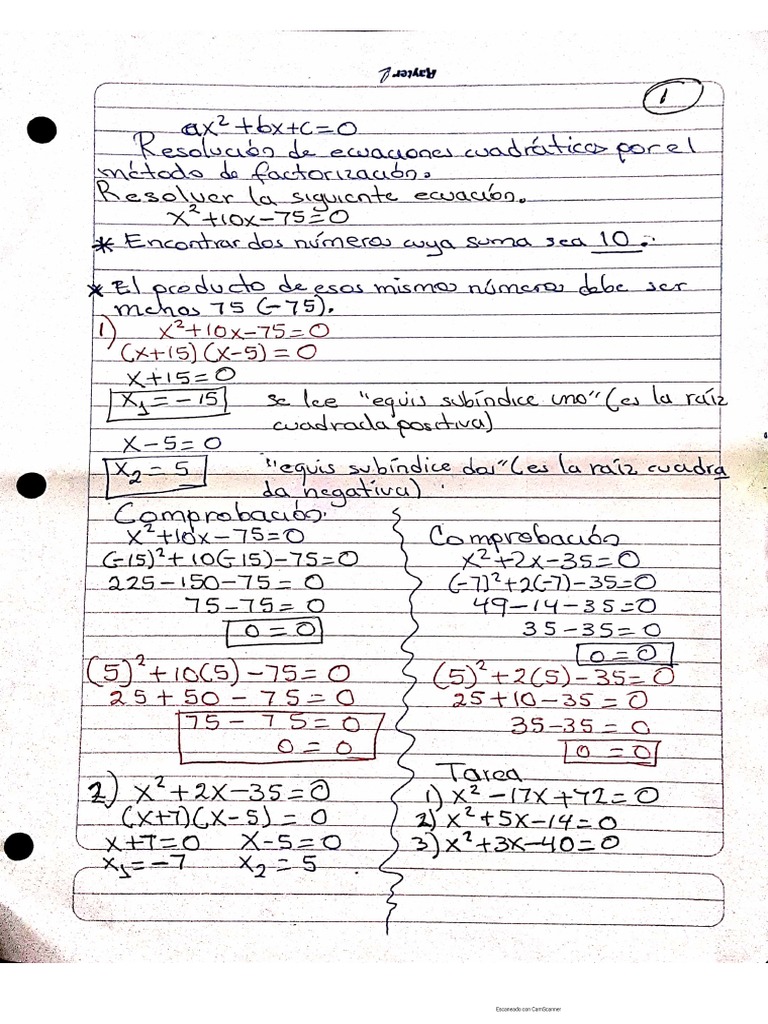 Rayter
1
ax² + bx + c = 0
Resolución de ecuaciones cuadráticas por el
método de factorización.
Resolver la siguiente ecuación.
x² + 10x - 75 = 0
* Encontrar dos números cuya suma sea 10.
* El producto de esos mismos números debe ser
menos 75 (-75).
1) x² + 10x - 75 = 0
(x+15) (x-5) = 0
x + 15 = 0
x₁ = -15 se lee "equis subíndice uno" (es la raíz
cuadrada positiva)
x - 5 = 0
x₂ = 5 "equis subíndice dos" (es la raíz cuadra
da negativa)
Comprobación:
x² + 10x - 75 = 0
(-15)² + 10(-15) - 75 = 0
225 - 150 - 75 = 0
75 - 75 = 0
0 = 0
(5)² + 10(5) - 75 = 0
25 + 50 - 75 = 0
75 - 75 = 0
0 = 0
2) x² + 2x - 35 = 0
(x+7)(x-5) = 0
x + 7 = 0 x - 5 = 0
x₁ = -7 x₂ = 5
Comprobación
x² + 2x - 35 = 0
(-7)² + 2(-7) - 35 = 0
49 - 14 - 35 = 0
35 - 35 = 0
0 = 0
(5)² + 2(5) - 35 = 0
25 + 10 - 35 = 0
35 - 35 = 0
0 = 0
Tarea
1) x² - 17x + 72 = 0
2) x² + 5x - 14 = 0
3) x² + 3x - 40 = 0
Escaneado con CamScanner